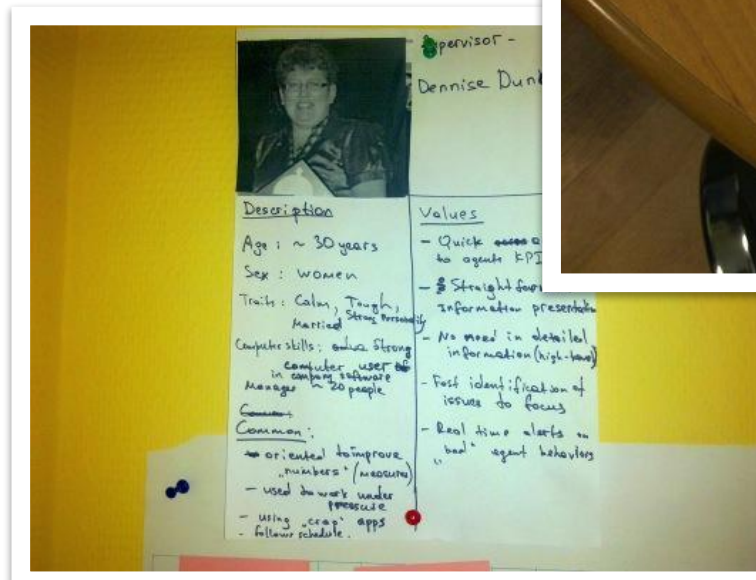 Supervisor -
Dennise
Description
Age : ~ 30 years
Sex : women
Traits : Calm, Tough,
Married Strong Personality
Computer skills : Strong
computer user
in company software
Manager ~ 20 people
Common :
- oriented to improve
"numbers" (measures)
- used to work under
pressure
- using "crap" apps
- follows schedule.
Values
- Quick
to agents KPI
- Straight
information presentation
- No need in detailed
information (high-level)
- Fast identification of
issues to focus
- Real time alerts on
"bad" agent behaviors